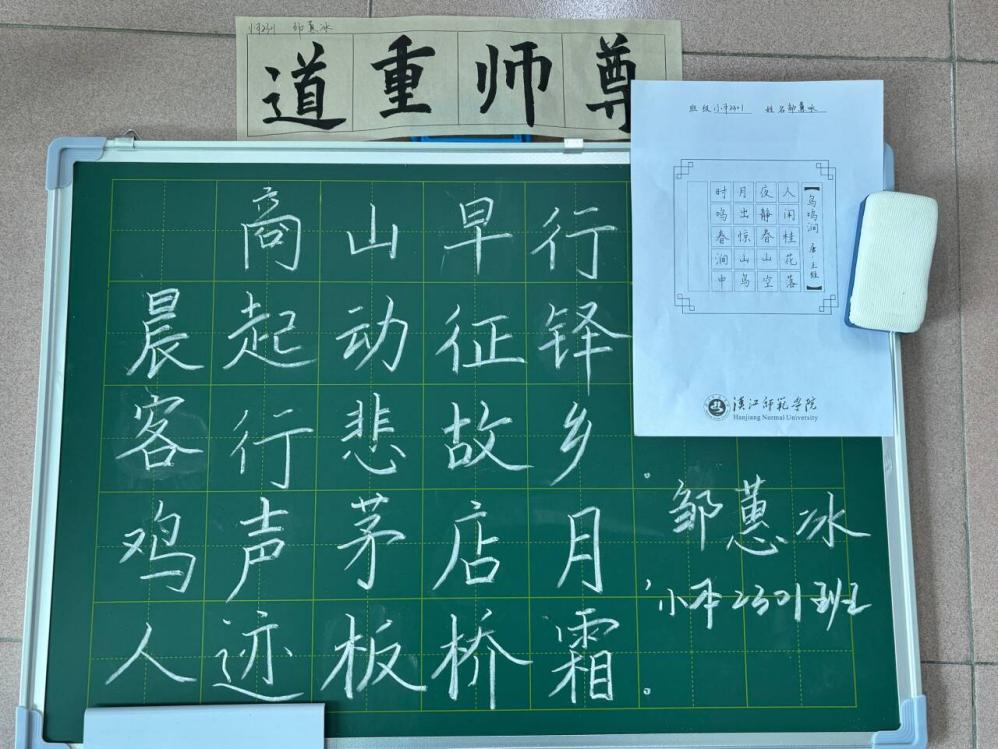 小本2301 邹蕙冰
道重师尊
班级 小本2301 姓名 邹蕙冰
【鸟鸣涧 唐·王维】
人闲桂花落
夜静春山空
月出惊山鸟
时鸣春涧中
漢江师范学院
Hanjiang Normal University
商山早行
晨起动征铎
客行悲故乡。
鸡声茅店月,
人迹板桥霜。
邹蕙冰
小本2301班